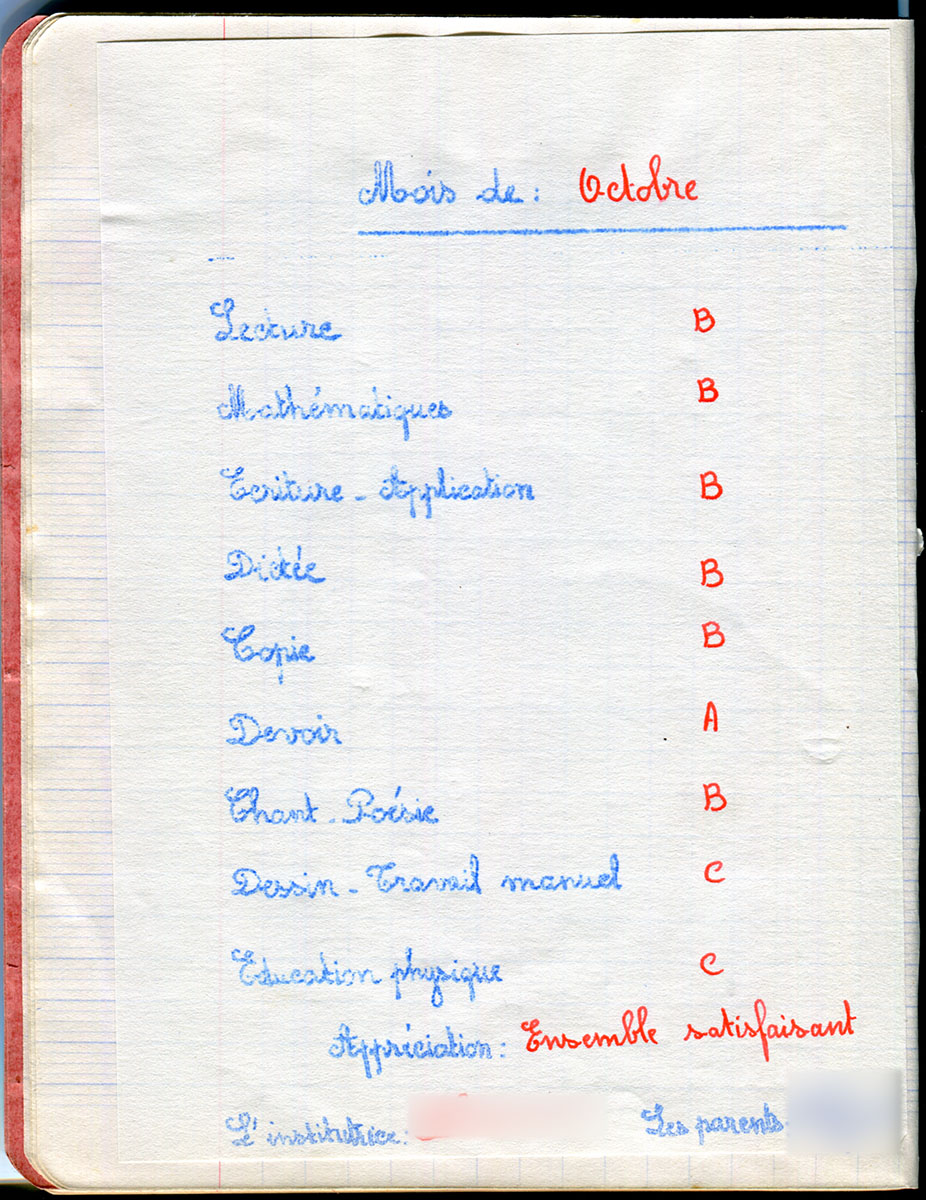 Mois de : Octobre
Lecture B
Mathématiques B
Ecriture - Application B
Dictée B
Copie B
Devoir A
Chant - Poésie B
Dessin - Travail manuel C
Education physique C
Appréciation : Ensemble satisfaisant
L'institutrice : Les parents